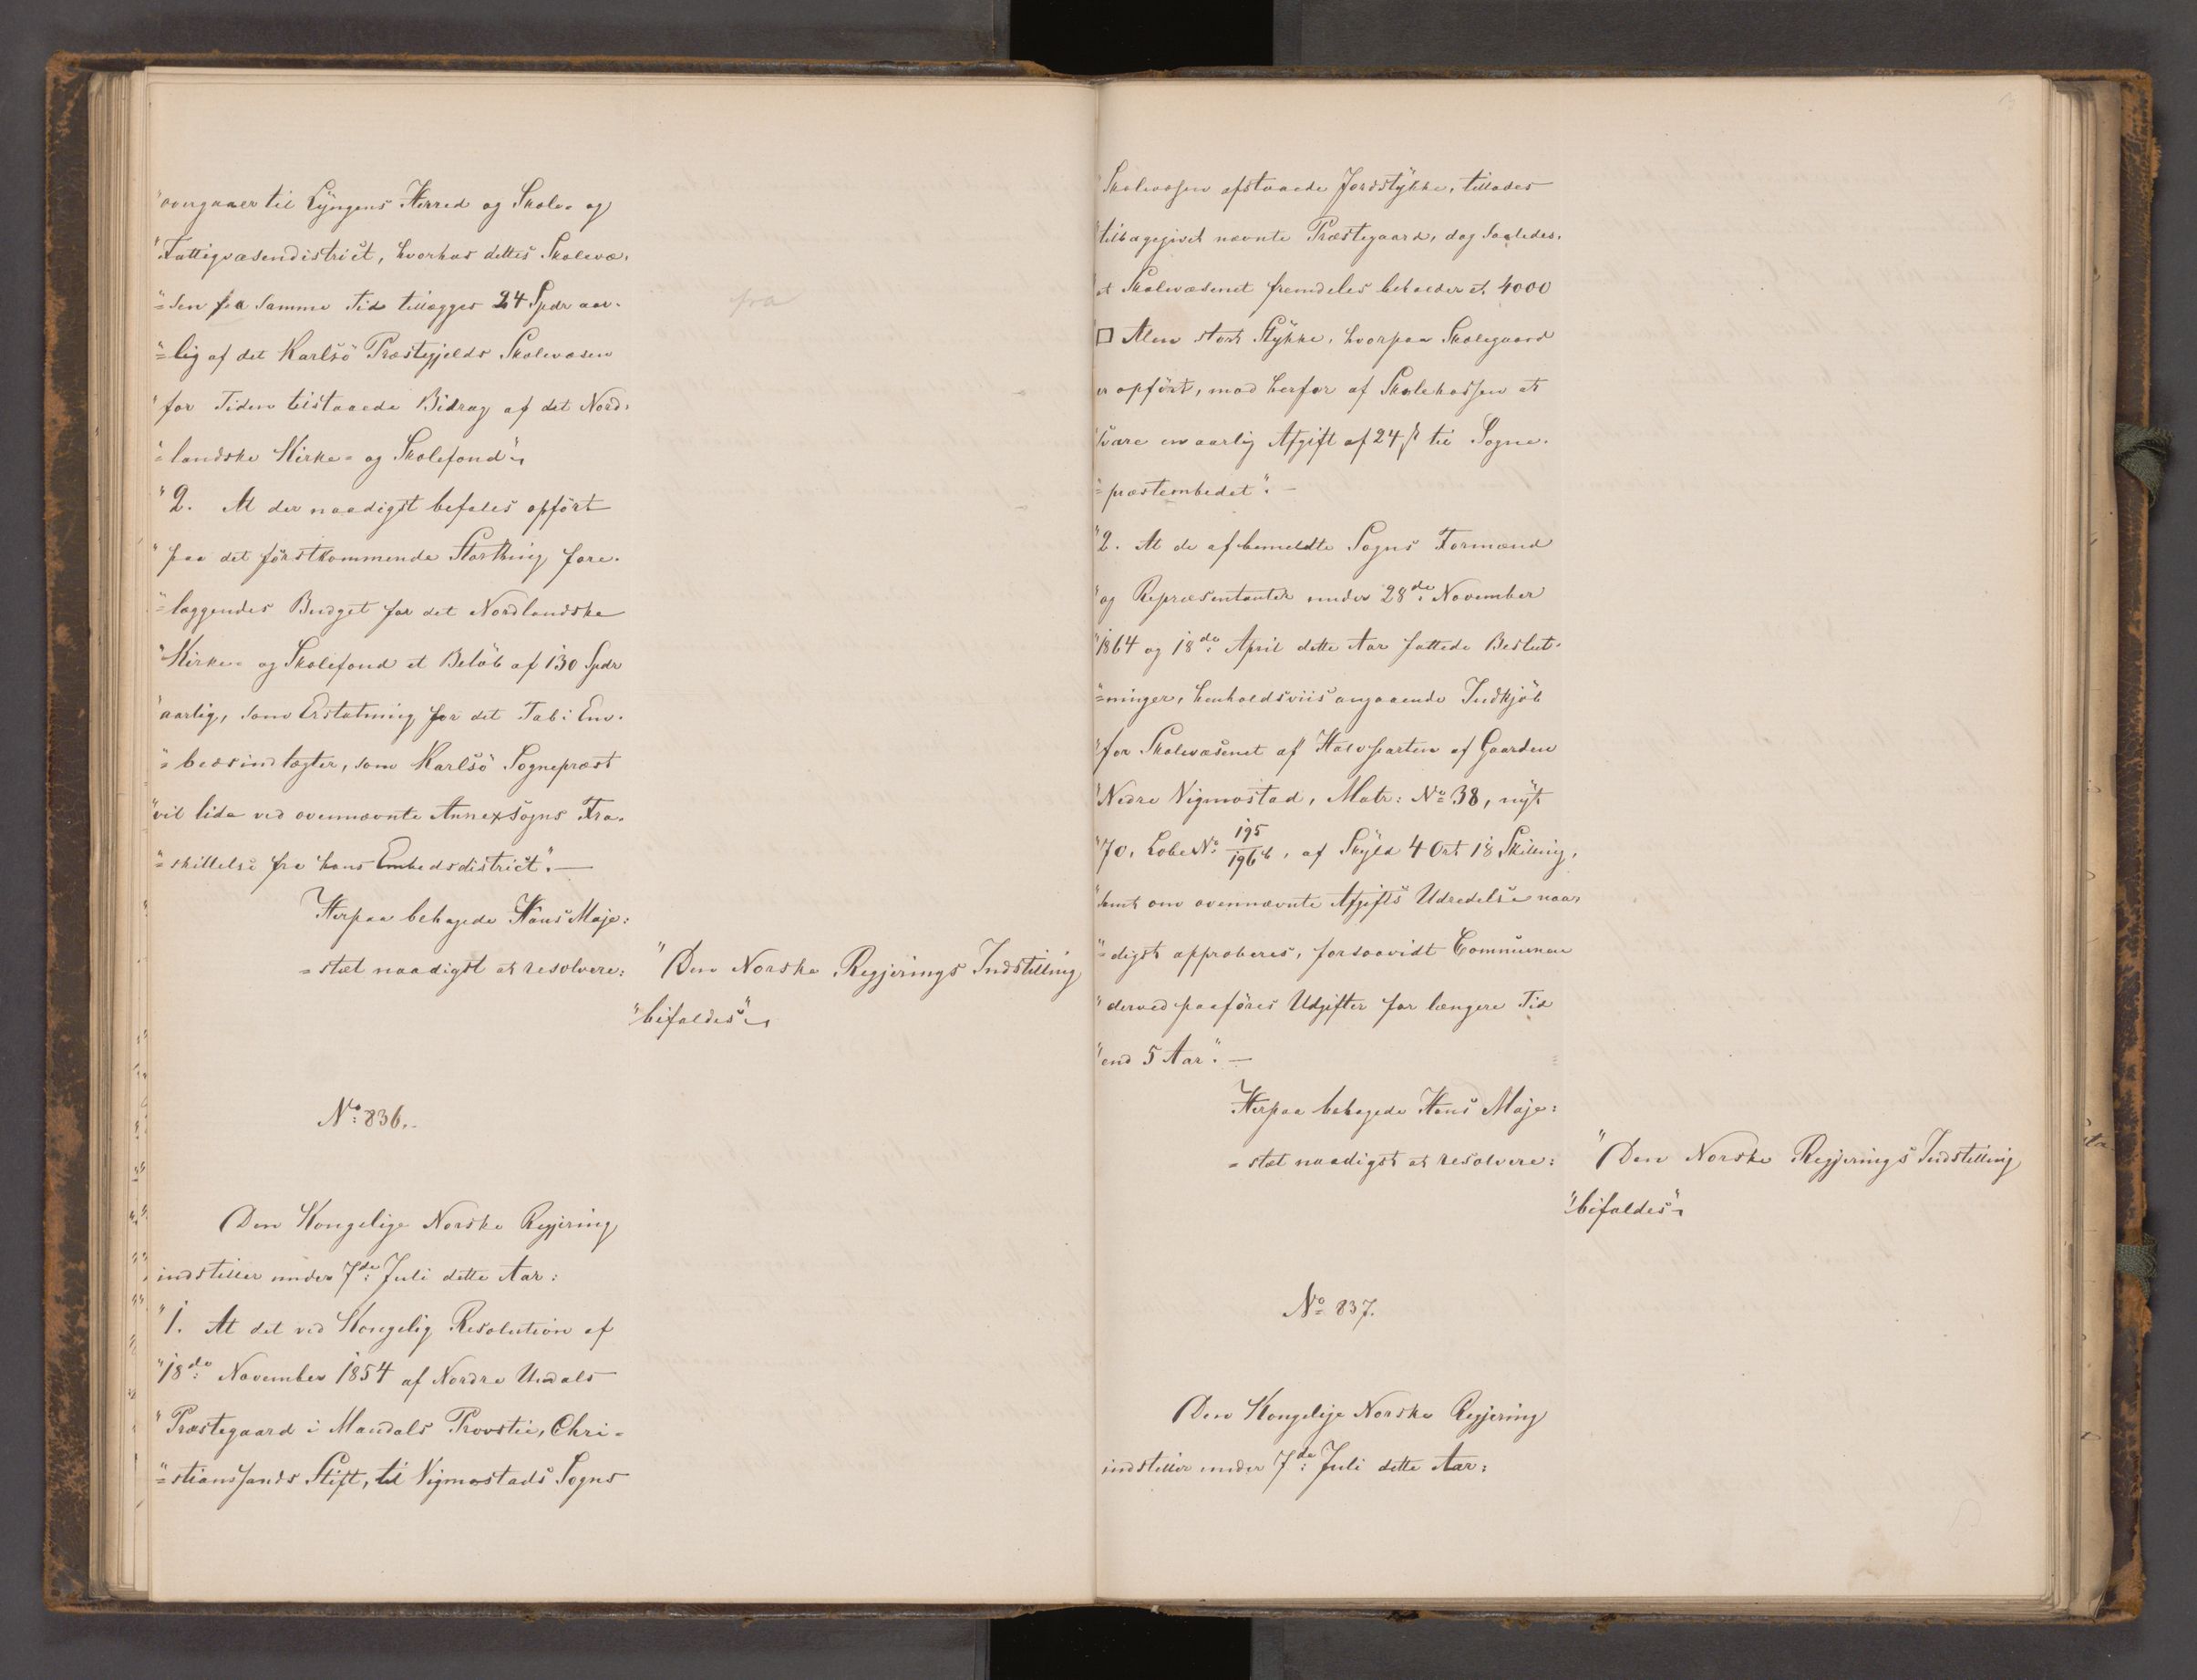 "overgaaer til Lyngens Herred og Skole- og
"Fattigvæsendistrict, hvorhos dettes Skolevæ-
"=sen fra samme Tid tillægges 24 Spdr aar-
"=lig af det Karlsö Præstegjelds Skolevæsen
"for Tiden tilstaaede Bidrag af det Nord-
"=landske Kirke- og Skolefond".
"2. At der naadigst befales opfört
"paa det förstkommende Storthing fore-
"=læggendes Budget for det Nordlandske
"Kirke- og Skolefond et Belöb af 130 Spdr
"aarlig, som Erstatning for det Tab i Em-
"=bedsindtægter, som Karlsö Sognepræst
"vil lide ved ovennævnte Annexsogns Fra-
"=skillelse fra hans Embedsdistrict".—
Herpaa behagede Hans Maje:
=stæt naadigst at resolvere:
fra
"Den Norske Regjerings Indstilling
"bifaldes".
No: 836.
Den Kongelige Norske Regjering
indstiller under 7de: Juli dette Aar:
"1. At det ved Kongelig Resolution af
"18de: November 1854 af Nordre Undals
"Præstegaard i Mandals Provstie, Chri-
"=stianssands Stift, til Vigmostads Sogns
"Skolevæsen afstaaede Jordstykke, tillades
"tilbagegivet nævnte Præstegaard, dog saaledes,
"at Skolevæsenet fremdeles beholder et 4000
□ Alen stort Stykke, hvorpaa Skolegaard
er opfört, mod herfor af Skolekassen at
"svare en aarlig Afgift af 24 ß til Sogne-
"=præstembedet".—
"2. At de af bemeldte Sogns Formænd
"og Repræsentanter under 28de: November
"1864 og 18de: April dette Aar fattede Beslut-
"=ninger, henholdsviis angaaende Indkjöb
"for Skolevæsenet af Halvparten af Gaarden
"Nedre Vigmostad, Matr: No 38, nyt
"70, LöbeNo 195/196 b, af Skyld 4 Ort 18 Skilling,
"samt om ovennævnte Afgifts Udredelse naa-
"=digst approberes, forsaavidt Communen
"derved paaföres Udgifter for længere Tid
"end 5 Aar".—
Herpaa behagede Hans Maje:
=stæt naadigst at resolvere:
"Den Norske Regjerings Indstilling
"bifaldes".
No 837.
Den Kongelige Norske Regjering
indstiller under 7de: Juli dette Aar: